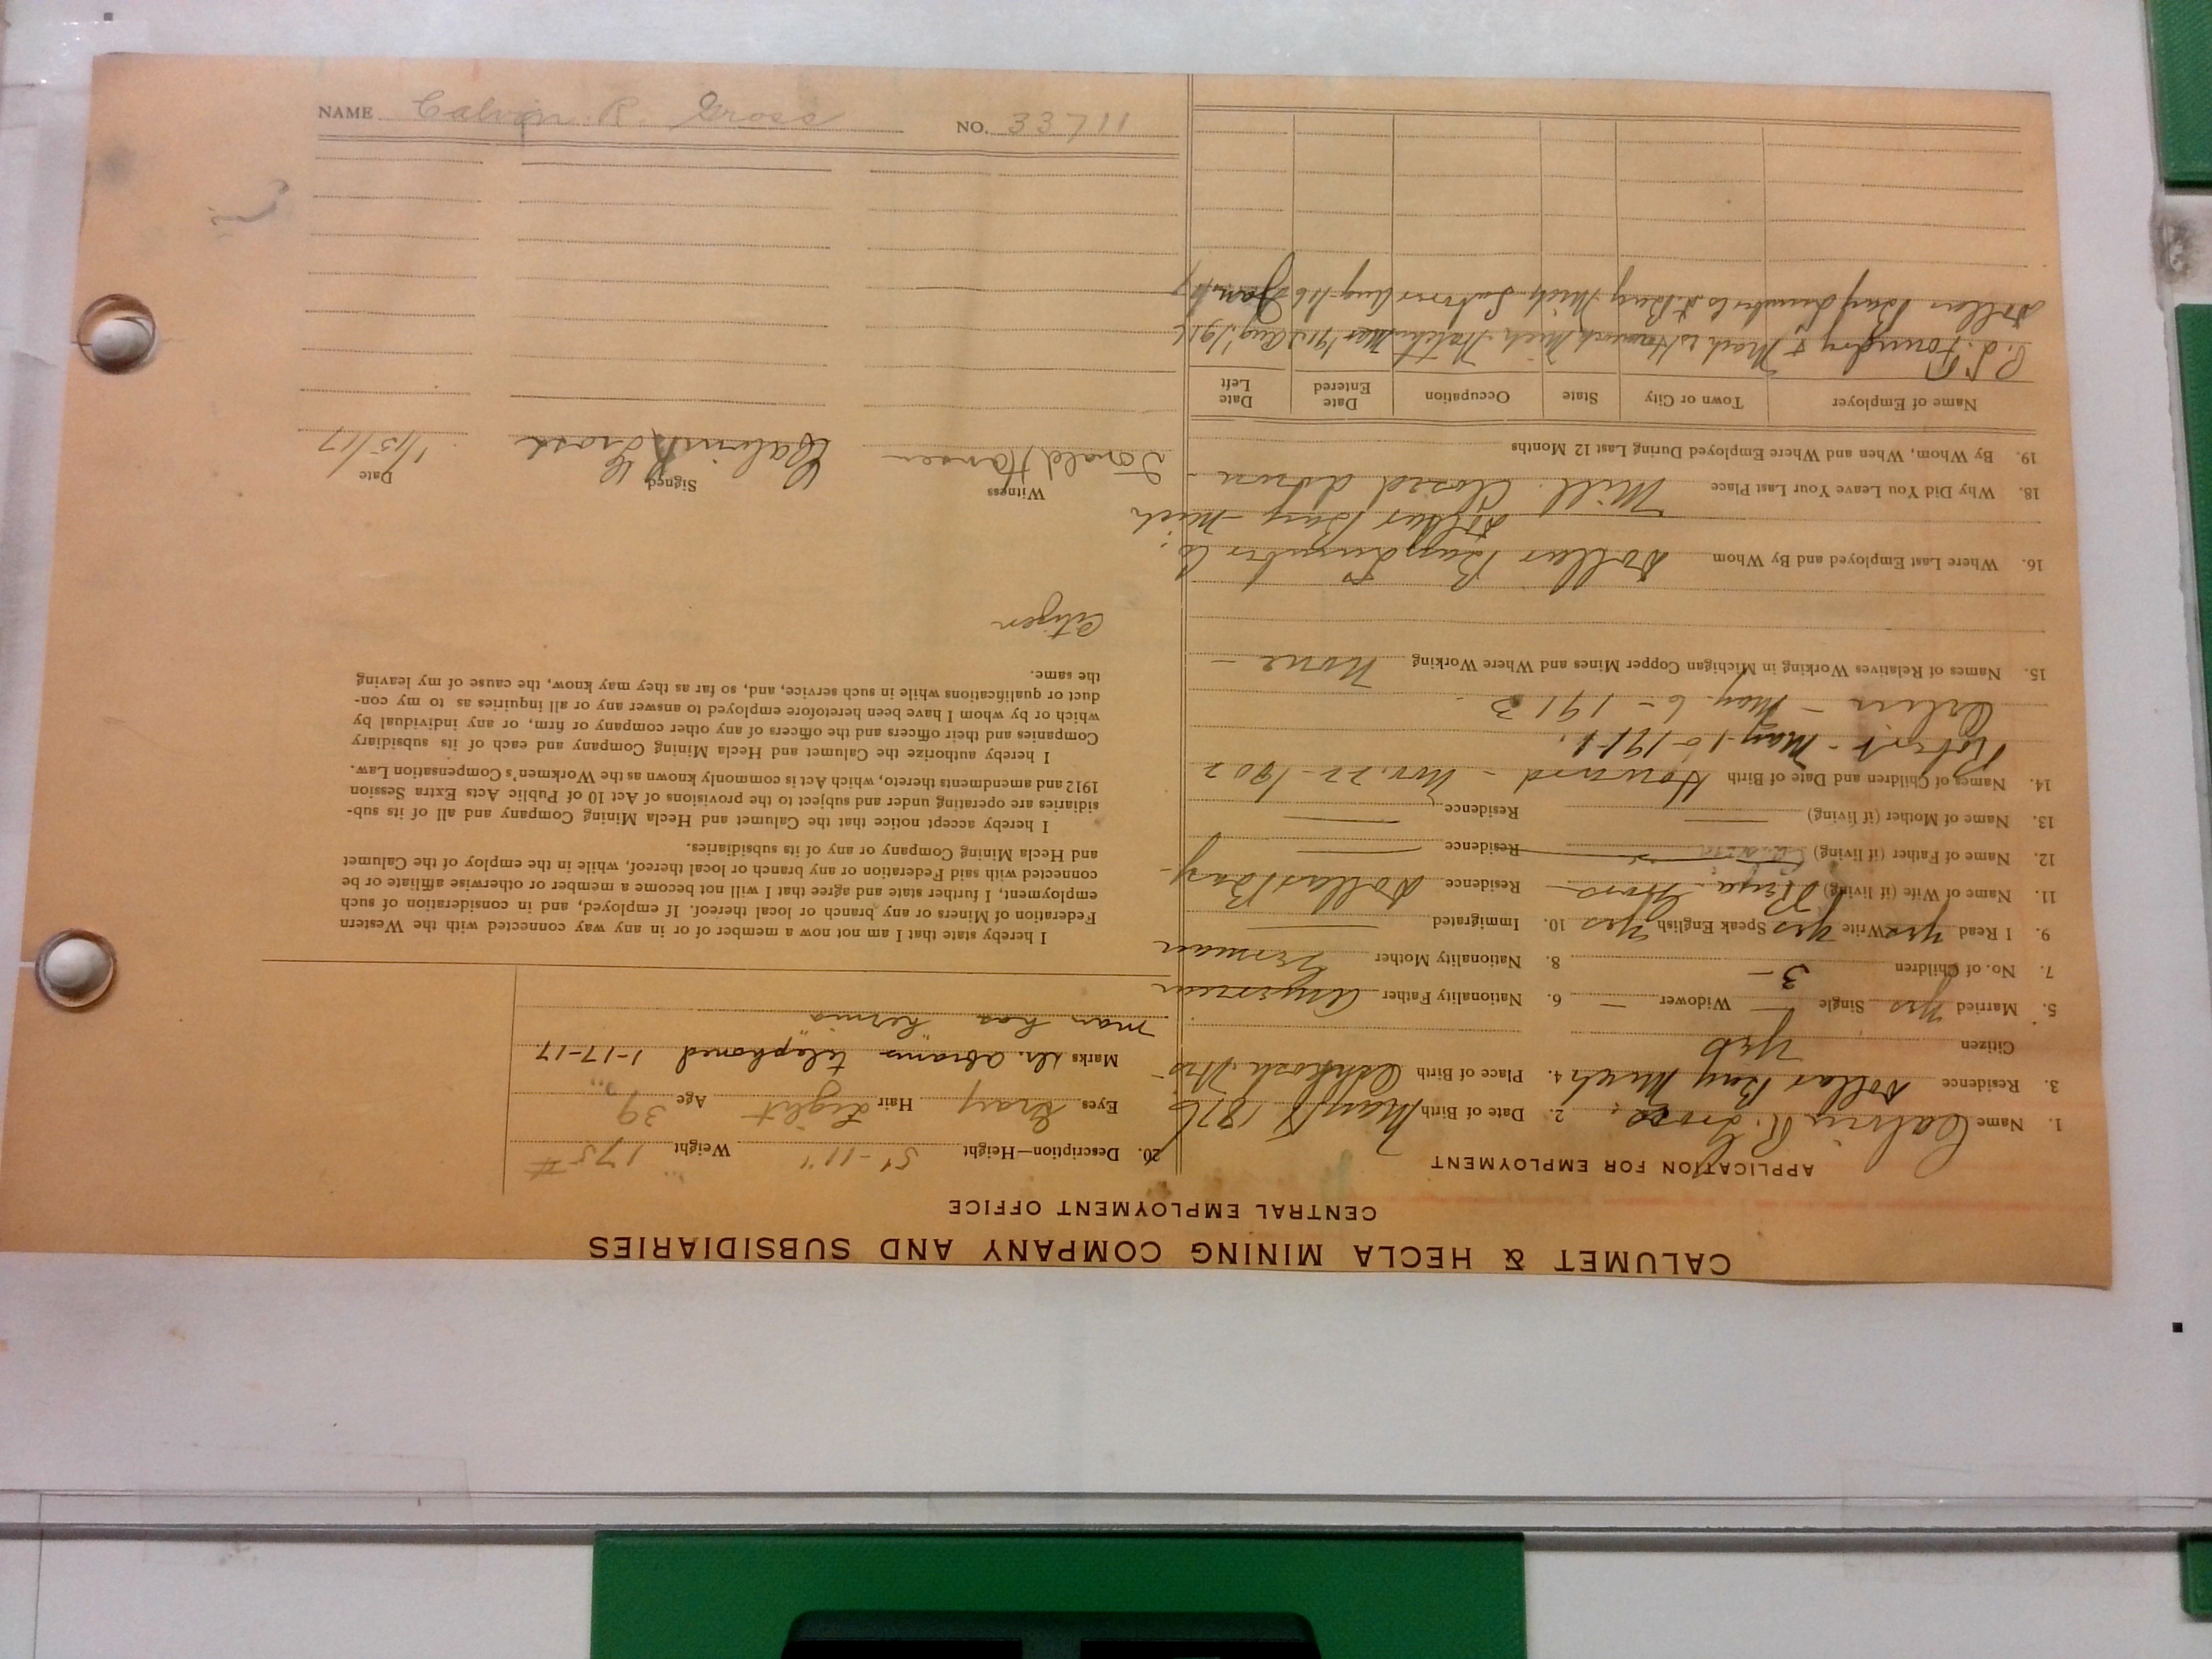 CALUMET & HECLA MINING COMPANY AND SUBSIDIARIES
CENTRAL EMPLOYMENT OFFICE
APPLICATION FOR EMPLOYMENT
1. Name Calvin R. Gross. 2. Date of Birth May 8 1876
3. Residence Dollar Bay Mich 4. Place of Birth Oshkosh Wis
Citizen Yes
5. Married Yes Single — Widower — 6. Nationality Father American
7. No. of Children 3 — 8. Nationality Mother German
9. I Read Yes Write Yes Speak English Yes 10. Immigrated
11. Name of Wife (if living) Gross Residence Dollar Bay
12. Name of Father (if living) Residence
13. Name of Mother (if living) Residence
14. Names of Children and Date of Birth Howard - Nov. 22 - 1902
Robert - May 10 1911.
- May 6 - 1913
15. Names of Relatives Working in Michigan Copper Mines and Where Working None -
16. Where Last Employed and By Whom Dollar Bay Lumber Co.
Dollar Bay Mich
18. Why Did You Leave Your Last Place Mill Closed down -
19. By Whom, When and Where Employed During Last 12 Months
Name of Employer Town or City State Occupation Date Entered Date Left
Foundry & Mach Co Hancock Mich Mar Aug 1916
Dollar Bay Lumber Co D. Bay Mich Laborer Aug 16 Jan 17
20. Description—Height 5'-11" Weight 175#
Eyes Gray Hair Light Age 39
Marks Dr. Abrams telephoned 1-17-17
man has "hernia"
I hereby state that I am not now a member of or in any way connected with the Western
Federation of Miners or any branch or local thereof. If employed, and in consideration of such
employment, I further state and agree that I will not become a member or otherwise affiliate or be
connected with said Federation or any branch or local thereof, while in the employ of the Calumet
and Hecla Mining Company or any of its subsidiaries.
I hereby accept notice that the Calumet and Hecla Mining Company and all of its sub-
sidiaries are operating under and subject to the provisions of Act 10 of Public Acts Extra Session
1912 and amendments thereto, which Act is commonly known as the Workmen's Compensation Law.
I hereby authorize the Calumet and Hecla Mining Company and each of its subsidiary
Companies and their officers and the officers of any other company or firm, or any individual by
which or by whom I have been heretofore employed to answer any or all inquiries as to my con-
duct or qualifications while in such service, and, so far as they may know, the cause of my leaving
the same.
Citizen
Witness Signed Date
Donald Hansen Calvin R Gross 1/15/17
NAME Calvin R. Gross NO. 33711